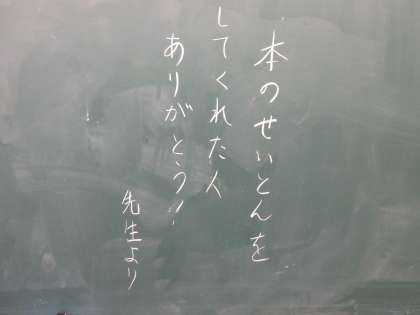 本のせいとんを
してくれた人
ありがとう!
先生より